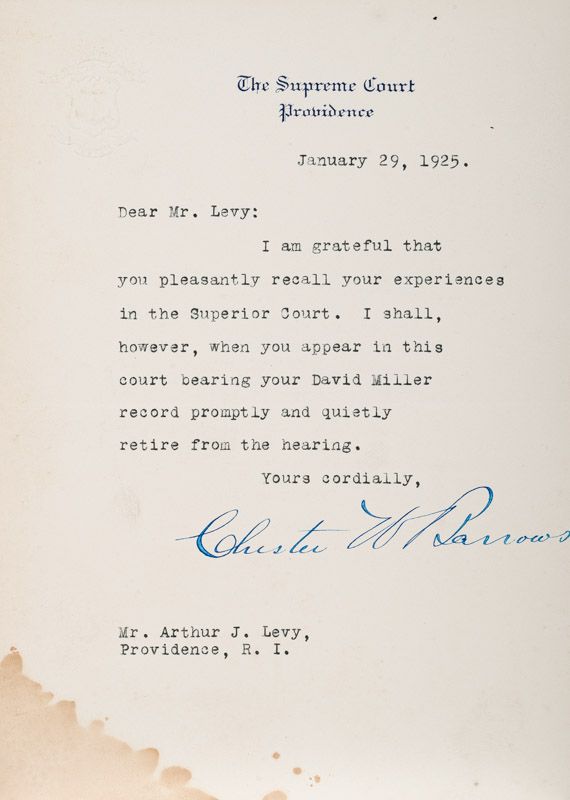 The Supreme Court
Providence
January 29, 1925.
Dear Mr. Levy:
I am grateful that
you pleasantly recall your experiences
in the Superior Court. I shall,
however, when you appear in this
court bearing your David Miller
record promptly and quietly
retire from the hearing.
Yours cordially,
Chester W Barrows
Mr. Arthur J. Levy,
Providence, R. I.